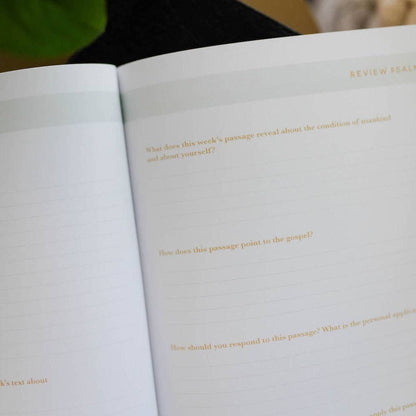 k's text about
REVIEW PSALM
What does this week's passage reveal about the condition of mankind
and about yourself?
How does this passage point to the gospel?
How should you respond to this passage? What is the personal applic
apply this pas